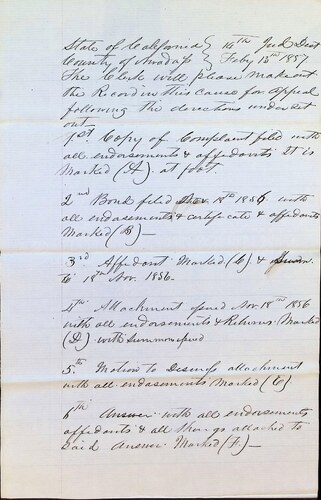 State of California } 14th Jud Dist
County of { Feby 13th 1857
The Clerk will please make out
the Record in this cause for Appeal
following the directions under set
out
1st Copy of Complaint filed with
all endorsements & affidavits It is
Marked (A) at foot.
2nd Bond filed Nov 18th 1856 with
all endorsements & certificate & affidavits
Marked (B) —
3rd Affidavit Marked (C) & Sworn
to 18th Nov. 1856.
4th Attachment issued Nov. 18th 1856
with all endorsements & Returns Marked
(D) with Summons
5th Motion to Dismiss attachment
with all endorsements Marked
6th Answer with all endorsements
affidavits & all things attached to
Said Answer Marked (F.) —